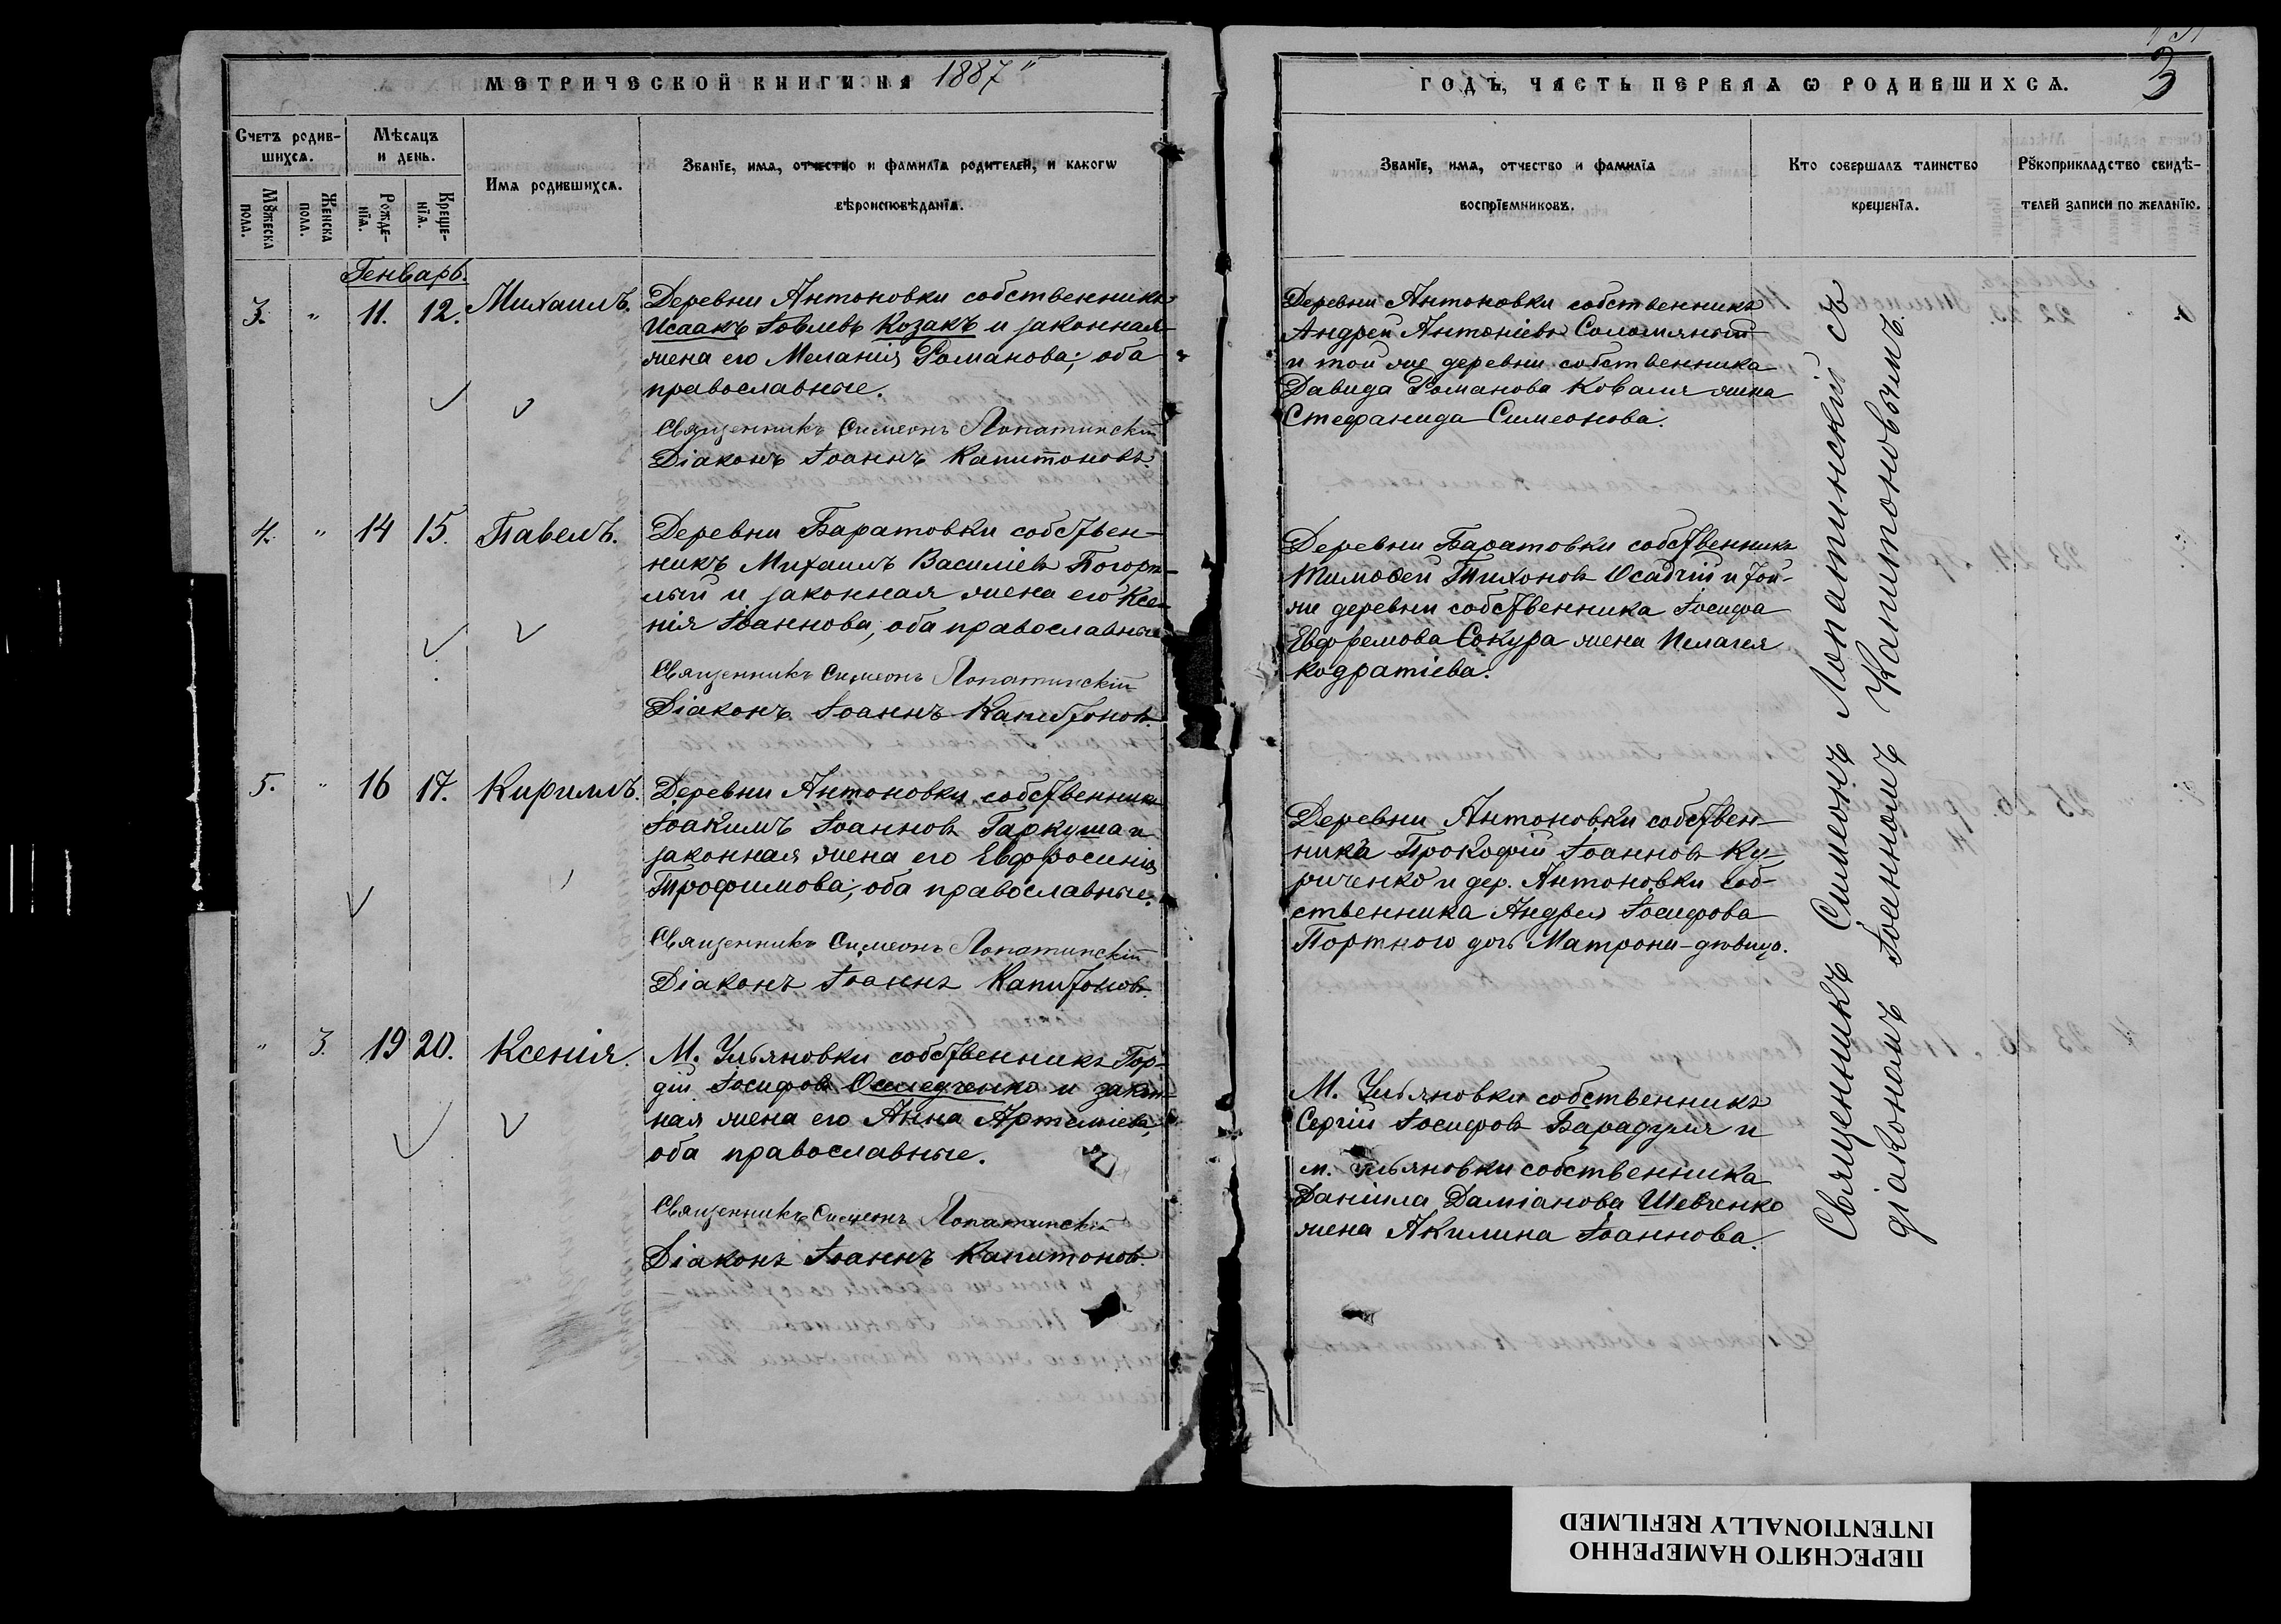 МЕТРИЧЕСКОЙ КНИГИ НА 1887
Счетъ родив-
шихсѧ.
Мѣсѧцъ
и день.
Имѧ родившихсѧ.
Званїе, имѧ, отчество и фамилїѧ родителей, и какогѡ
вѣроисповѣданїѧ.
Мꙋжеска
пола.
Женска
пола.
Рожде-
нїѧ.
Креще-
нїѧ.
Генварь.
3. " 11. 12. Михаилъ.
Деревни Антоновки собственникъ
Исаакъ Іовлевъ Козакъ и законная
жена его Меланія Романова; оба
православные.
Священникъ Симеонъ Лопатинскій
Діаконъ Іоаннъ Капитоновъ.
4. " 14 15. Павелъ.
Деревни Баратовки собствен-
никъ Михаилъ Василіевъ Погорѣ-
лый и законная жена его Ксе-
нія Іоаннова, оба православные
Священникъ Симеонъ Лопатинскій
Діаконъ Іоаннъ Капитоновъ.
5. " 16 17. Кириллъ.
Деревни Антоновки собственникъ
Іоакимъ Іоанновъ Гаркуша и
законная жена его Евфросинія
Трофимова; оба православные.
Священникъ Симеонъ Лопатинскій
Діаконъ Іоаннъ Капитоновъ.
" 3. 19 20. Ксенія.
М. Ульяновки собственникъ Гор-
дій Іосифовъ Оселедченко и закон-
ная жена его Анна Артеміева,
оба православные.
Священникъ Симеонъ Лопатинскій
Діаконъ Іоаннъ Капитоновъ.
ГОДЪ, ЧАСТЬ ПЕРВАѦ Ѡ РОДИВШИХСѦ.
3
Званїе, имѧ, отчество и фамилїѧ
воспрїемниковъ.
Кто совершалъ таинство
крещенїѧ.
Рꙋкоприкладство свидѣ-
телей записи по желанїю.
Деревни Антоновки собственникъ
Андрей Антоніевъ Соломяный
и той же деревни собственника
Давида Романова Коваля жена
Стефанида Симеонова.
Деревни Баратовки собственникъ
Тимоѳей Тихоновъ Осадчій и той-
же деревни собственника Іосифа
Евфремова Сокура жена Пелагея
Кодратіева.
Деревни Антоновки собствен-
ника Прокофій Іоанновъ Ку-
риченко и дер. Антоновки соб-
ственника Андрея Іосифова
Портного дочь Матрони-дѣвица.
М. Ульяновки собственникъ
Сергій Іосифовъ Барадуля и
м. Ульяновки собственника
Даніила Даміанова Шевченко
жена Акилина Іоаннова.
Священникъ Симеонъ Лопатинскій съ
діакономъ Іоанномъ Капитоновымъ.
ПЕРЕСНЯТО НАМЕРЕННО
INTENTIONALLY REFILMED